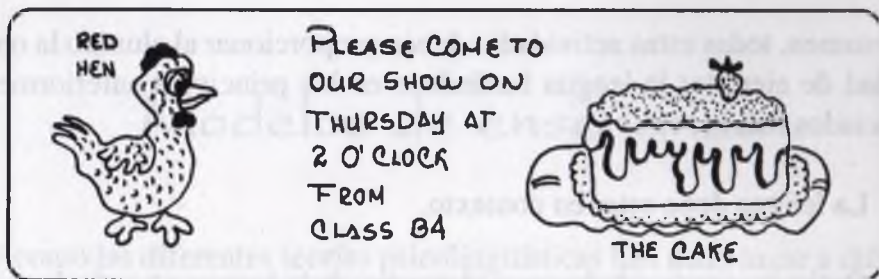 RED
HEN
PLEASE COME TO
OUR SHOW ON
THURSDAY AT
2 O'CLOCK
FROM
CLASS B4
THE CAKE